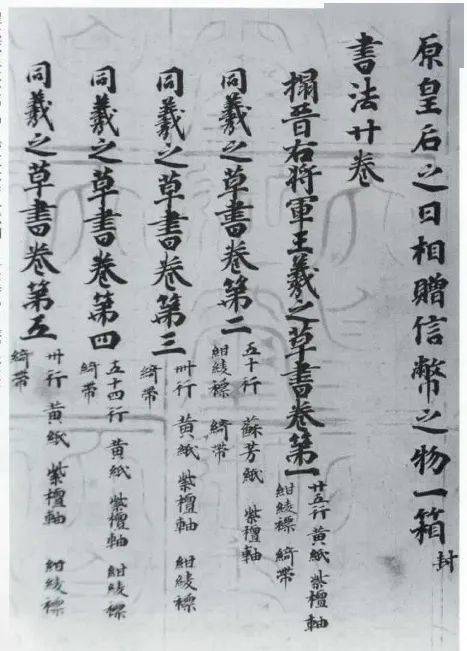 原皇后之日相贈信幣之物一箱 封
書法廿卷
搨晉右将軍王羲之草書卷第一
廿五行 黄紙 紫檀軸
紺綾褾 綺帶
同羲之草書卷第二
五十行 蘇芳紙 紫檀軸
紺綾褾 綺帶
同羲之草書卷第三
卌行 黄紙 紫檀軸 紺綾褾
綺帶
同羲之草書卷第四
五十四行 黄紙 紫檀軸 紺綾褾
綺帶
同羲之草書卷第五
卌行 黄紙 紫檀軸 紺綾褾
綺帶